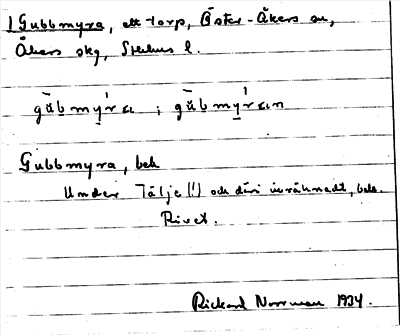 Gubbmyra, ett torp, Öster-Åkers sn,
Åkers skg, Sthlms l.
gŭbmy̠ʹra ; gŭbmy̠ʹran
Gubbmyra, beb
Under Tälje (!) och däri inräknadt, beb.
Rivet.
Rickard Norrman 1934.